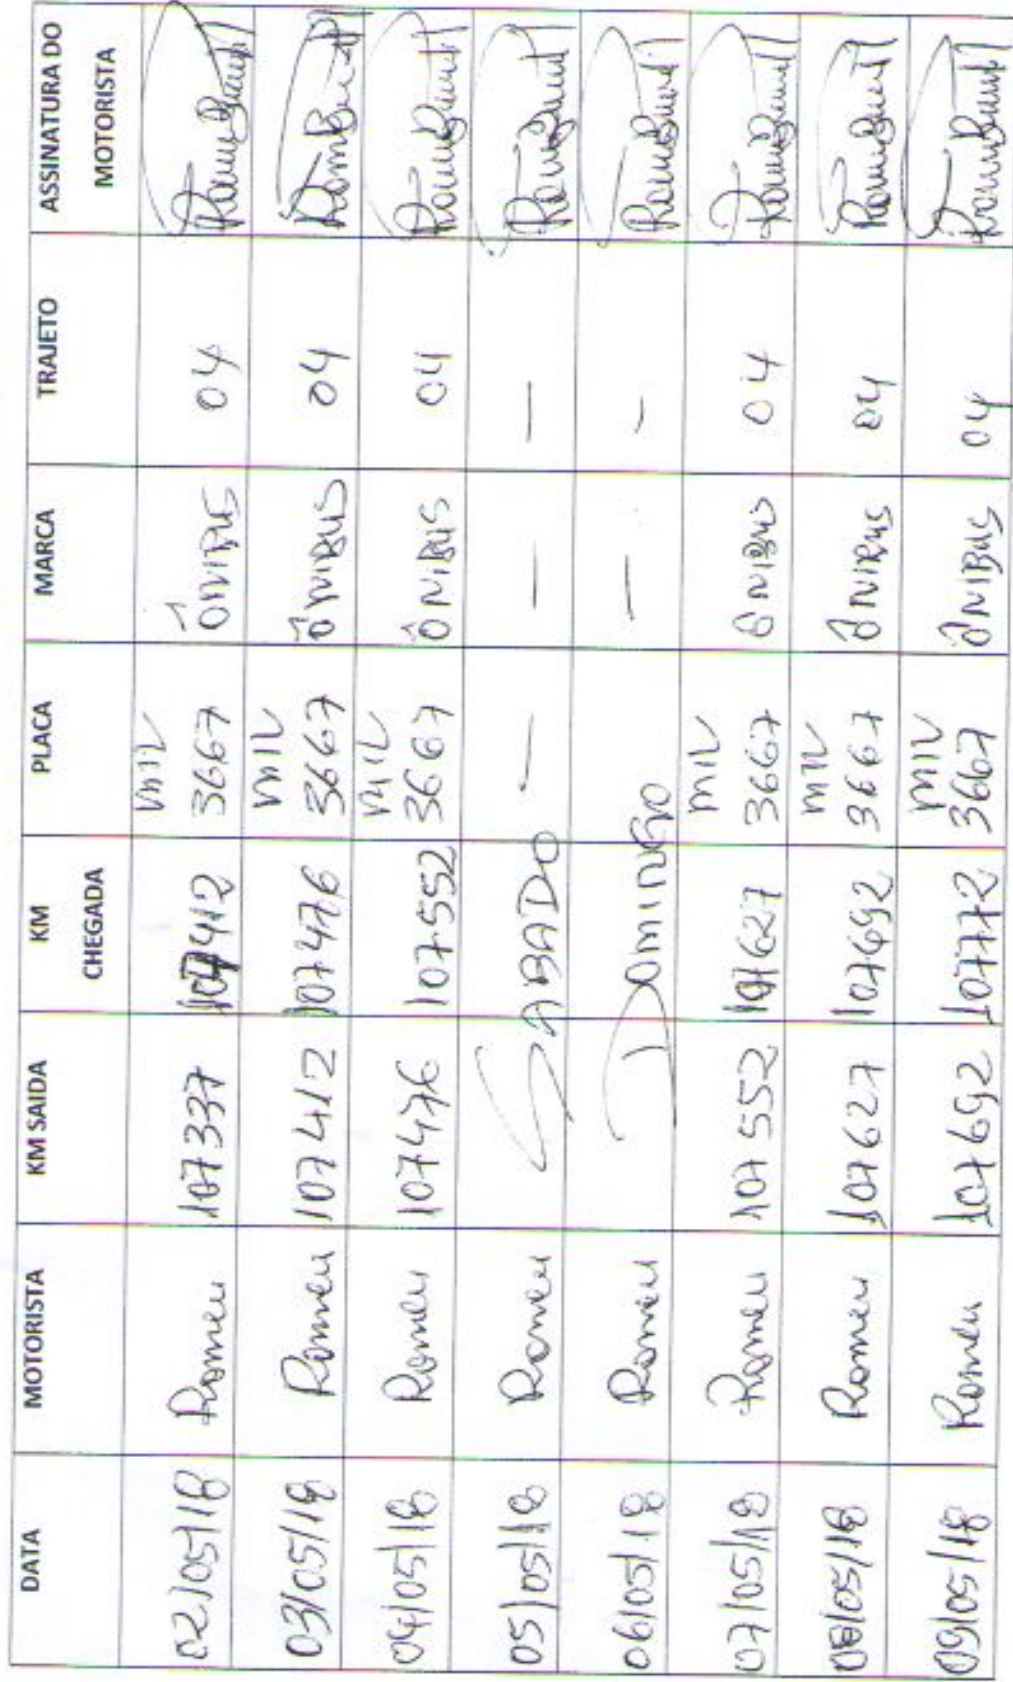 DATA MOTORISTA KM SAIDA KM CHEGADA PLACA MARCA TRAJETO ASSINATURA DO MOTORISTA
02/05/18 Romeu 107337 107412 MIL 3667 ÔNIBUS 04
03/05/18 Romeu 107412 107476 MIL 3667 ÔNIBUS 04
04/05/18 Romeu 107476 107552 MIL 3667 ÔNIBUS 04
05/05/18 Romeu SABADO — — —
06/05/18 Romeu DOMINGO — —
07/05/18 Romeu 107552 107627 MIL 3667 ÔNIBUS 04
08/05/18 Romeu 107627 107692 MIL 3667 ÔNIBUS 04
09/05/18 Romeu 107692 107772 MIL 3667 ÔNIBUS 04